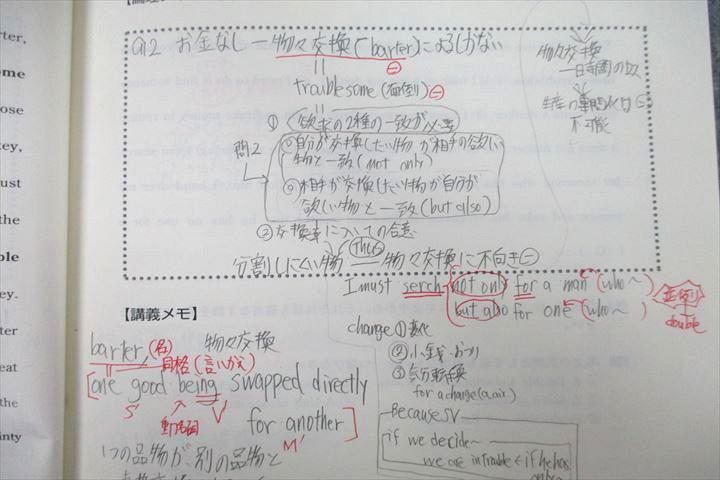 ¶12 お金なし一物々交換(barter)によるしかない
=
⊖
troublesome(面倒)⊖
① 欲求の2種の一致が必要
問2
⑦自分が交換したい物が相手の欲しい
物と一致(not only)
④相手が交換したい物が自分が
欲しい物と一致(but also)
②交換率についての合意
Thus
分割しにくい物 ― 物々交換に不向き⊖
物々交換
時間の
生産の専門化⊖
不可能
I must serch not only for a man (who~ )
but also for one (who~ )
並列
double
【講義メモ】
barter(名) 物々交換
同格(言いかえ)
[one good being swapped directly
S' 動名詞 V'
for another]
M'
1つの品物が、別の品物と
change ①変化
②小銭・おつり
③気分転換
for a change(air)
Because SV
if we decide~
we are in trouble ← if he has
arter,
ome
ose
ey,
ust
the
ble
ey.
ter
eat
the
inty